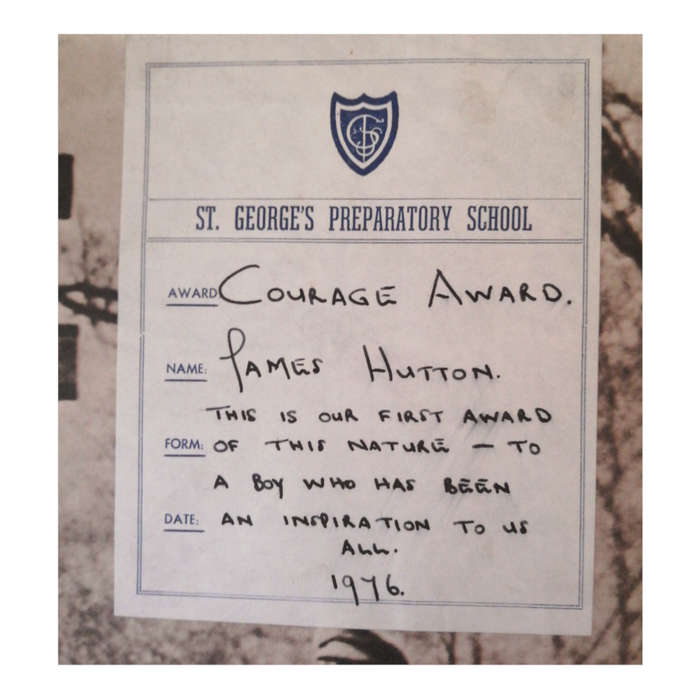 ST. GEORGE'S PREPARATORY SCHOOL
AWARD COURAGE AWARD.
NAME: JAMES HUTTON.
THIS IS OUR FIRST AWARD
FORM: OF THIS NATURE – TO
A BOY WHO HAS BEEN
DATE: AN INSPIRATION TO US
ALL.
1976.